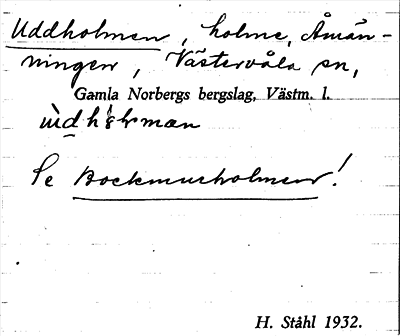 Uddholmen, holme, Åmän-
ningen, Västervåla sn,
Gamla Norbergs bergslag, Västm. l.
Se Bockmurholmen!
H. Ståhl 1932.